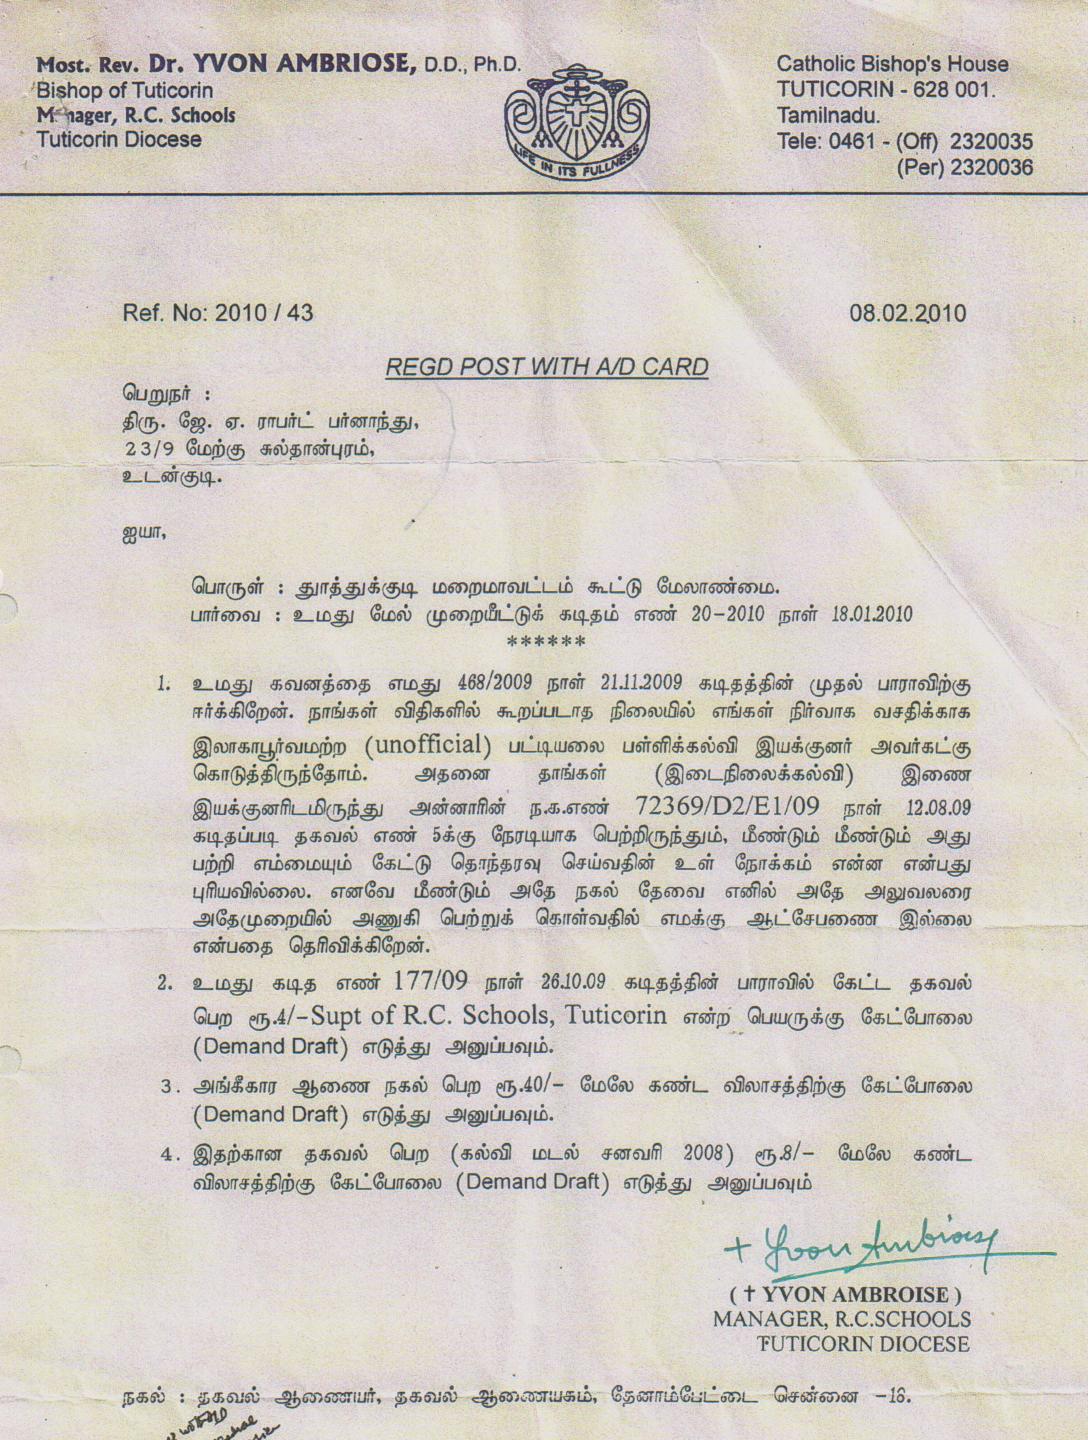 Most. Rev. Dr. YVON AMBRIOSE, D.D., Ph.D.
Bishop of Tuticorin
Manager, R.C. Schools
Tuticorin Diocese
LIFE IN ITS FULLNESS
Catholic Bishop's House
TUTICORIN - 628 001.
Tamilnadu.
Tele: 0461 - (Off) 2320035
(Per) 2320036
Ref. No: 2010 / 43
08.02.2010
REGD POST WITH A/D CARD
பெறுநர் :
திரு. ஜே. ஏ. ராபர்ட் பர்னாந்து,
23/9 மேற்கு சுல்தான்புரம்,
உடன்குடி.
ஐயா,
பொருள் : தூத்துக்குடி மறைமாவட்டம் கூட்டு மேலாண்மை.
பார்வை : உமது மேல் முறையீட்டுக் கடிதம் எண் 20-2010 நாள் 18.01.2010
******
1. உமது கவனத்தை எமது 468/2009 நாள் 21.11.2009 கடிதத்தின் முதல் பாராவிற்கு
ஈர்க்கிறேன். நாங்கள் விதிகளில் கூறப்படாத நிலையில் எங்கள் நிர்வாக வசதிக்காக
இலாகாபூர்வமற்ற (unofficial) பட்டியலை பள்ளிக்கல்வி இயக்குனர் அவர்கட்கு
கொடுத்திருந்தோம். அதனை தாங்கள் (இடைநிலைக்கல்வி) இணை
இயக்குனரிடமிருந்து அன்னாரின் ந.க.எண் 72369/D2/E1/09 நாள் 12.08.09
கடிதப்படி தகவல் எண் 5க்கு நேரடியாக பெற்றிருந்தும், மீண்டும் மீண்டும் அது
பற்றி எம்மையும் கேட்டு தொந்தரவு செய்வதின் உள் நோக்கம் என்ன என்பது
புரியவில்லை. எனவே மீண்டும் அதே நகல் தேவை எனில் அதே அலுவலரை
அதேமுறையில் அணுகி பெற்றுக் கொள்வதில் எமக்கு ஆட்சேபணை இல்லை
என்பதை தெரிவிக்கிறேன்.
2. உமது கடித எண் 177/09 நாள் 26.10.09 கடிதத்தின் பாராவில் கேட்ட தகவல்
பெற ரூ.4/-Supt of R.C. Schools, Tuticorin என்ற பெயருக்கு கேட்போலை
(Demand Draft) எடுத்து அனுப்பவும்.
3. அங்கீகார ஆணை நகல் பெற ரூ.40/- மேலே கண்ட விலாசத்திற்கு கேட்போலை
(Demand Draft) எடுத்து அனுப்பவும்.
4. இதற்கான தகவல் பெற (கல்வி மடல் சனவரி 2008) ரூ.8/- மேலே கண்ட
விலாசத்திற்கு கேட்போலை (Demand Draft) எடுத்து அனுப்பவும்
+ Yvon Ambroise
( † YVON AMBROISE )
MANAGER, R.C.SCHOOLS
TUTICORIN DIOCESE
நகல் : தகவல் ஆணையர், தகவல் ஆணையகம், தேனாம்பேட்டை சென்னை -18.